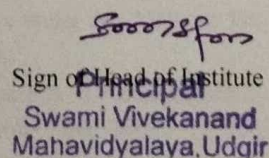 Sign of Head of Institute
Principal
Swami Vivekanand
Mahavidyalaya, Udgir